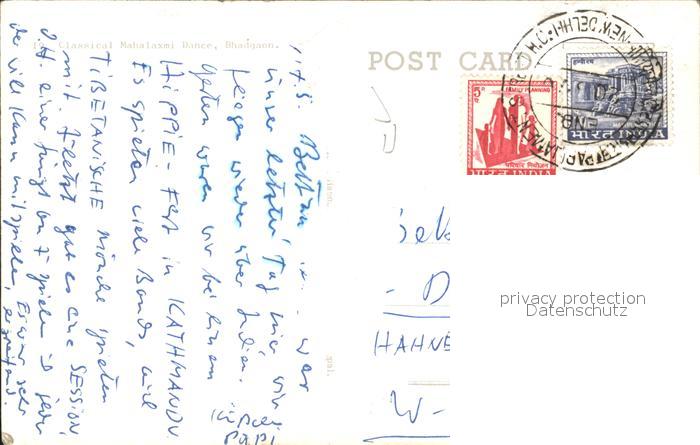 Classical Mahalaxmi Dance, Bhadgaon.
POST CARD
5
FAMILY PLANNING
परिवार नियोजन
भारत INDIA
भारत INDIA
NEW DELHI
unser letzter Tag hier wir
fliegen wieder über
gestern waren wir bei einem
HIPPIE - FEST in KATHMANDU
Es spielten viele Bands, auch
TIBETANISCHE Mönche spielten
mit. Zuletzt gab es eine SESSION,
d.H. einer fängt an zu spielen & jeder
der will kann mitspielen, Es war sehr
PAPI
- D
HAHNE
W-
privacy protection
Datenschutz